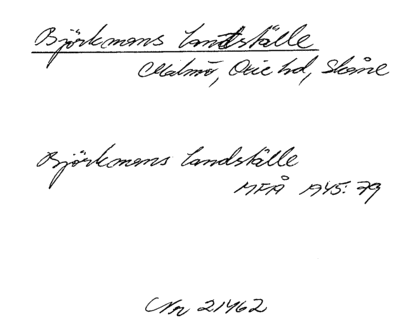 Björkmans landställe
Malmö, Oxie hd, Skåne
Björkmans landställe
MFÅ 1945: 79
Nr 21462